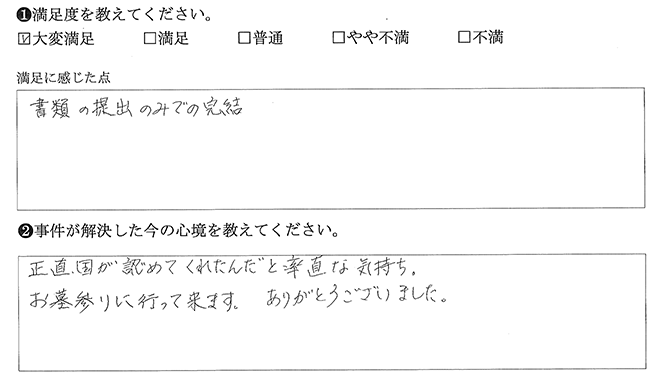 ❶満足度を教えてください。
☑大変満足 □満足 □普通 □やや不満 □不満
満足に感じた点
書類の提出のみでの完結
❷事件が解決した今の心境を教えてください。
正直、国が認めてくれたんだと率直な気持ち。
お墓参りに行って来ます。 ありがとうございました。